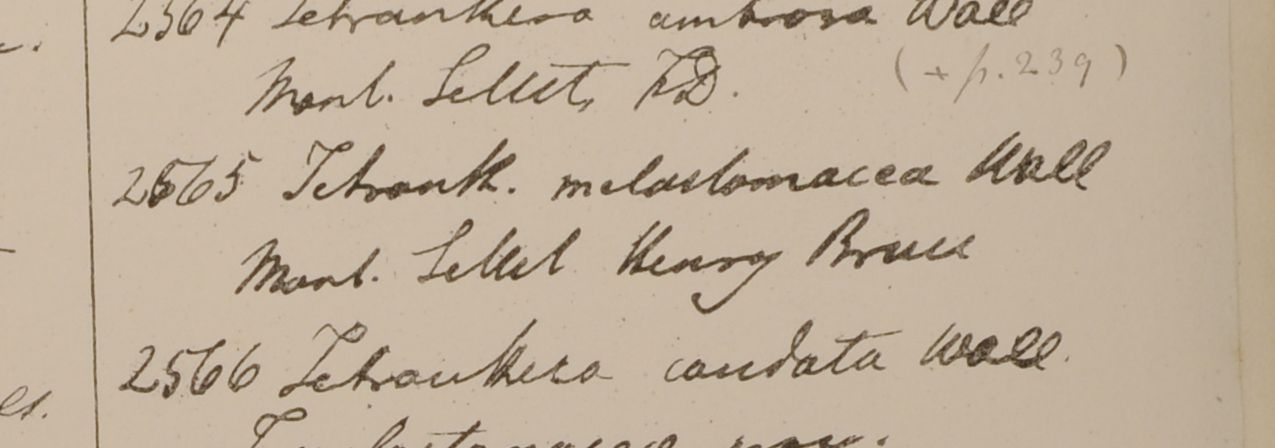 2564 Tetranthera ambrosa Wall
Mont. Sillet, FD. (+ p. 239)
2565 Tetranth. melastomacea Wall
Mont. Sillet Henry Bruce
2566 Tetranthera caudata Wall.